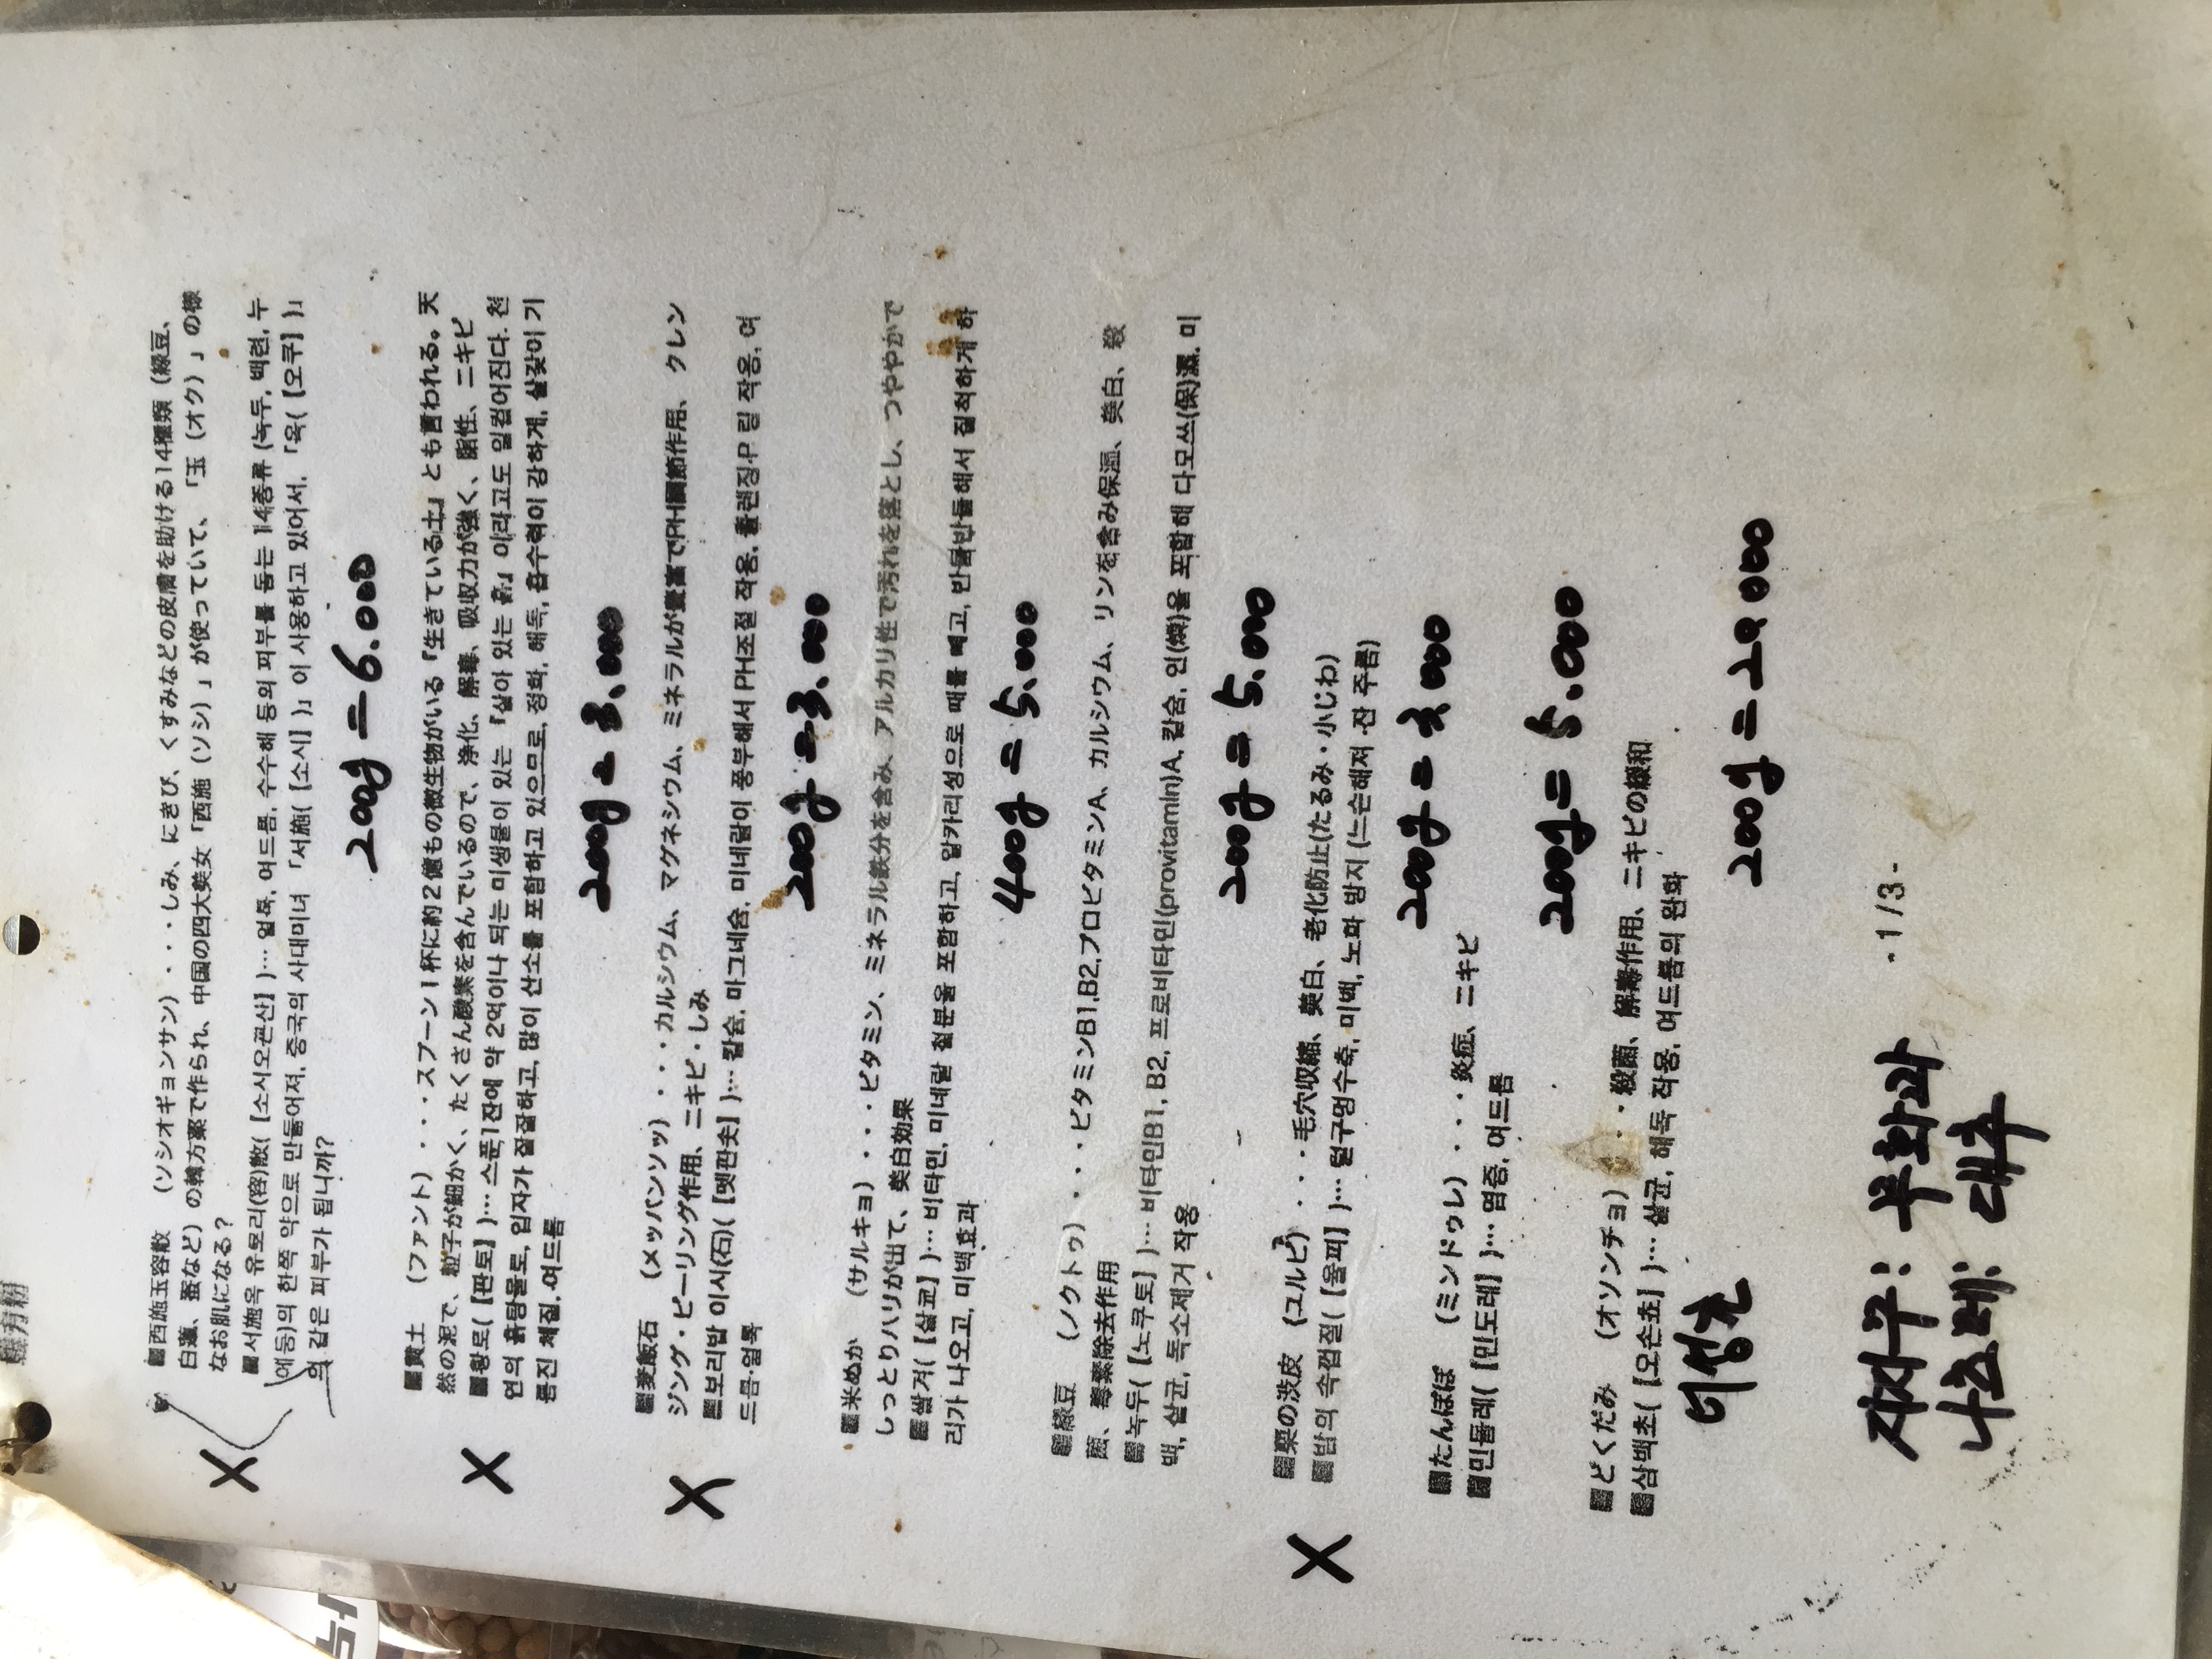 韓方粉
■西施玉容散 (ソシオギョンサン)・・・しみ、にきび、くすみなどの皮膚を助ける14種類(緑豆、
白蓮、蚕など)の韓方薬で作られ、中国の四大美女「西施(ソシ)」が使っていて、「玉(オク)」の様
なお肌になる?
■서施옥 유모리(容)散( [소시오꾠산] )… 얼룩, 여드름, 수수해 등의 피부를 돕는 14종류 (녹두, 백련, 누
에등)의 한쪽 약으로 만들어져, 중국의 사대미녀 「서施( [소시] )」이 사용하고 있어서, 「옥( [오쿠] )」
의 같은 피부가 됩니까?
200g = 6.000
X
■黄土 (ファント)・・・スプーン1杯に約2億もの微生物がいる「生きている土」とも言われる。天
然の泥で、粒子が細かく、たくさん酸素を含んでいるので、浄化、解毒、吸収力が強く、脂性、ニキビ
■황토( [판토] )… 스푼1잔에 약 2억이나 되는 미생물이 있는 「살아 있는 흙」이라고도 일컬어진다. 천
연의 흙탕물로, 입자가 잘잘하고, 많이 산소를 포함하고 있으므로, 정화, 해독, 흡수력이 강하게, 살갗이 기
름진 체질, 여드름
200g = 3.000
X
■麦飯石 (メッパンソッ)・・・カルシウム、マグネシウム、ミネラルが豊富でPH調節作用、クレン
ジング・ピーリング作用、ニキビ・しみ
■보리밥 이시(石)( [멧판솟] )… 칼슘, 마그네슘, 미네랄이 풍부해서 PH조절 작용, 클렌징·P 릴 작용, 여
드름·얼룩
200g = 3.000
X
■米ぬか (サルキョ)・・・ビタミン、ミネラル鉄分を含み、アルカリ性で汚れを落とし、つややかで
しっとりハリが出て、美白効果
■쌀겨( [살쿄] )… 비타민, 미네랄 철분을 포함하고, 알카리성으로 때를 빼고, 반들반들해서 질척하게 하
리가 나오고, 미백효과
400g = 5.000
■緑豆 (ノクトゥ)・・・ビタミンB1,B2,プロビタミンA、カルシウム、リンを含み保湿、美白、殺
菌、毒素除去作用
■녹두( [노쿠토] )… 비타민B1, B2, 프로비타민(provitamin)A, 칼슘, 인(燐)을 포함해 다모쓰(保)濕, 미
백, 살균, 독소제거 작용
200g = 5.000
■栗の渋皮 (ユルピ)・・・毛穴収縮、美白、老化防止(たるみ・小じわ)
■밤의 속껍질( [율피] )… 털구멍수축, 미백, 노화 방지 (느슨해져·잔 주름)
200g = 3.000
X
■たんぽぽ (ミンドゥレ)・・・炎症、ニキビ
■민들레( [민도레] )… 염증, 여드름
200g = 5.000
■どくだみ (オソンチョ)・・・殺菌、解毒作用、ニキビの緩和
■삼백초( [오손쵸] )… 살균, 해독 작용, 여드름의 완화
200g = 20000
- 1/3 -
무화과
대추